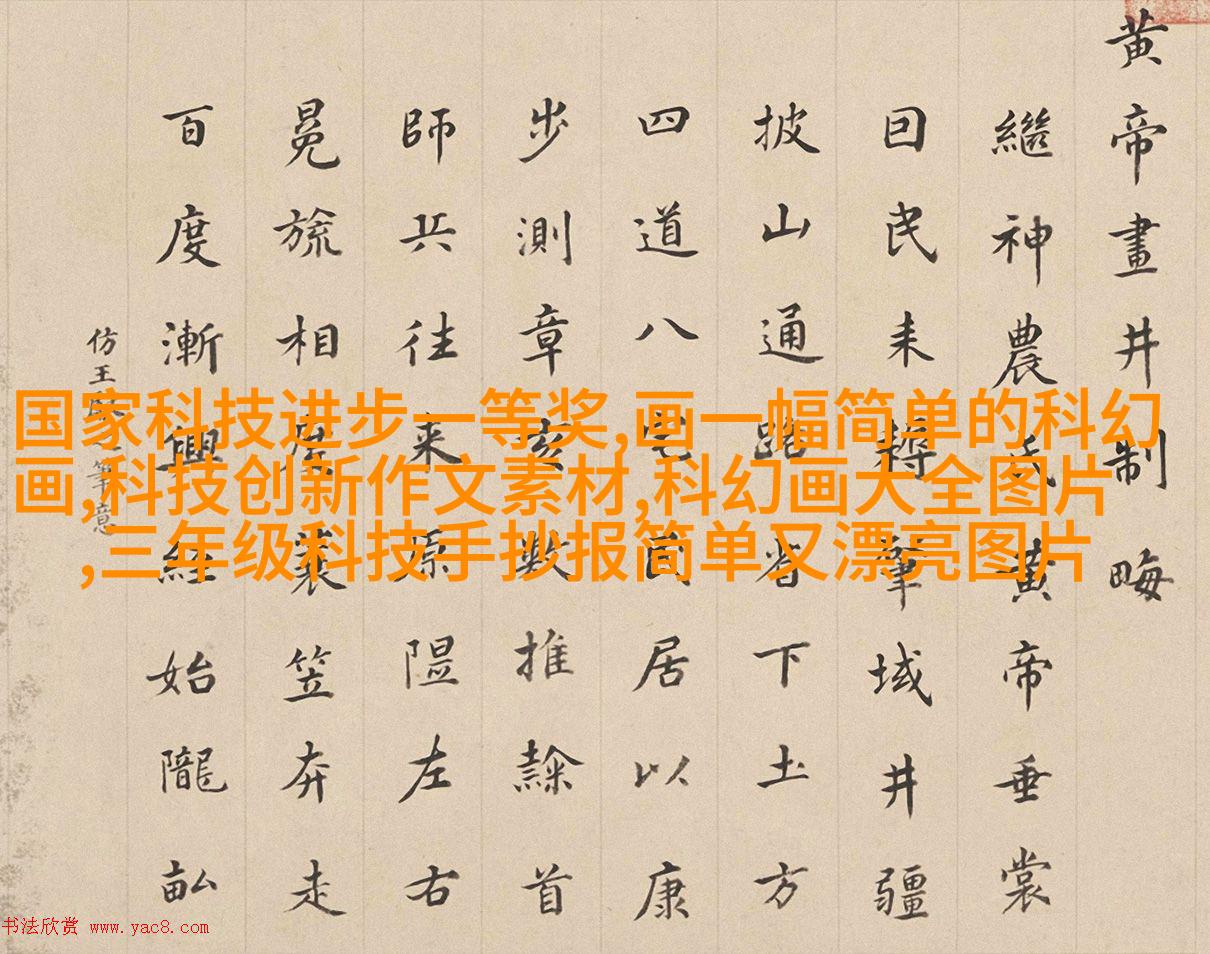 黄帝畫井制畮
繼神農氏黄帝垂裳
囙民耒耨肇域井疆
披山通路下土方
四道八宅居以康
步測章亥數推隸首
師兵往来原隰左右
冕旒相度蓑笠奔走
百度漸興經始隴畝
仿王筆意
国家科技进步一等奖,画一幅简单的科幻
画,科技创新作文素材,科幻画大全图片
,三年级科技手抄报简单又漂亮图片
书法欣赏 www.yac8.com